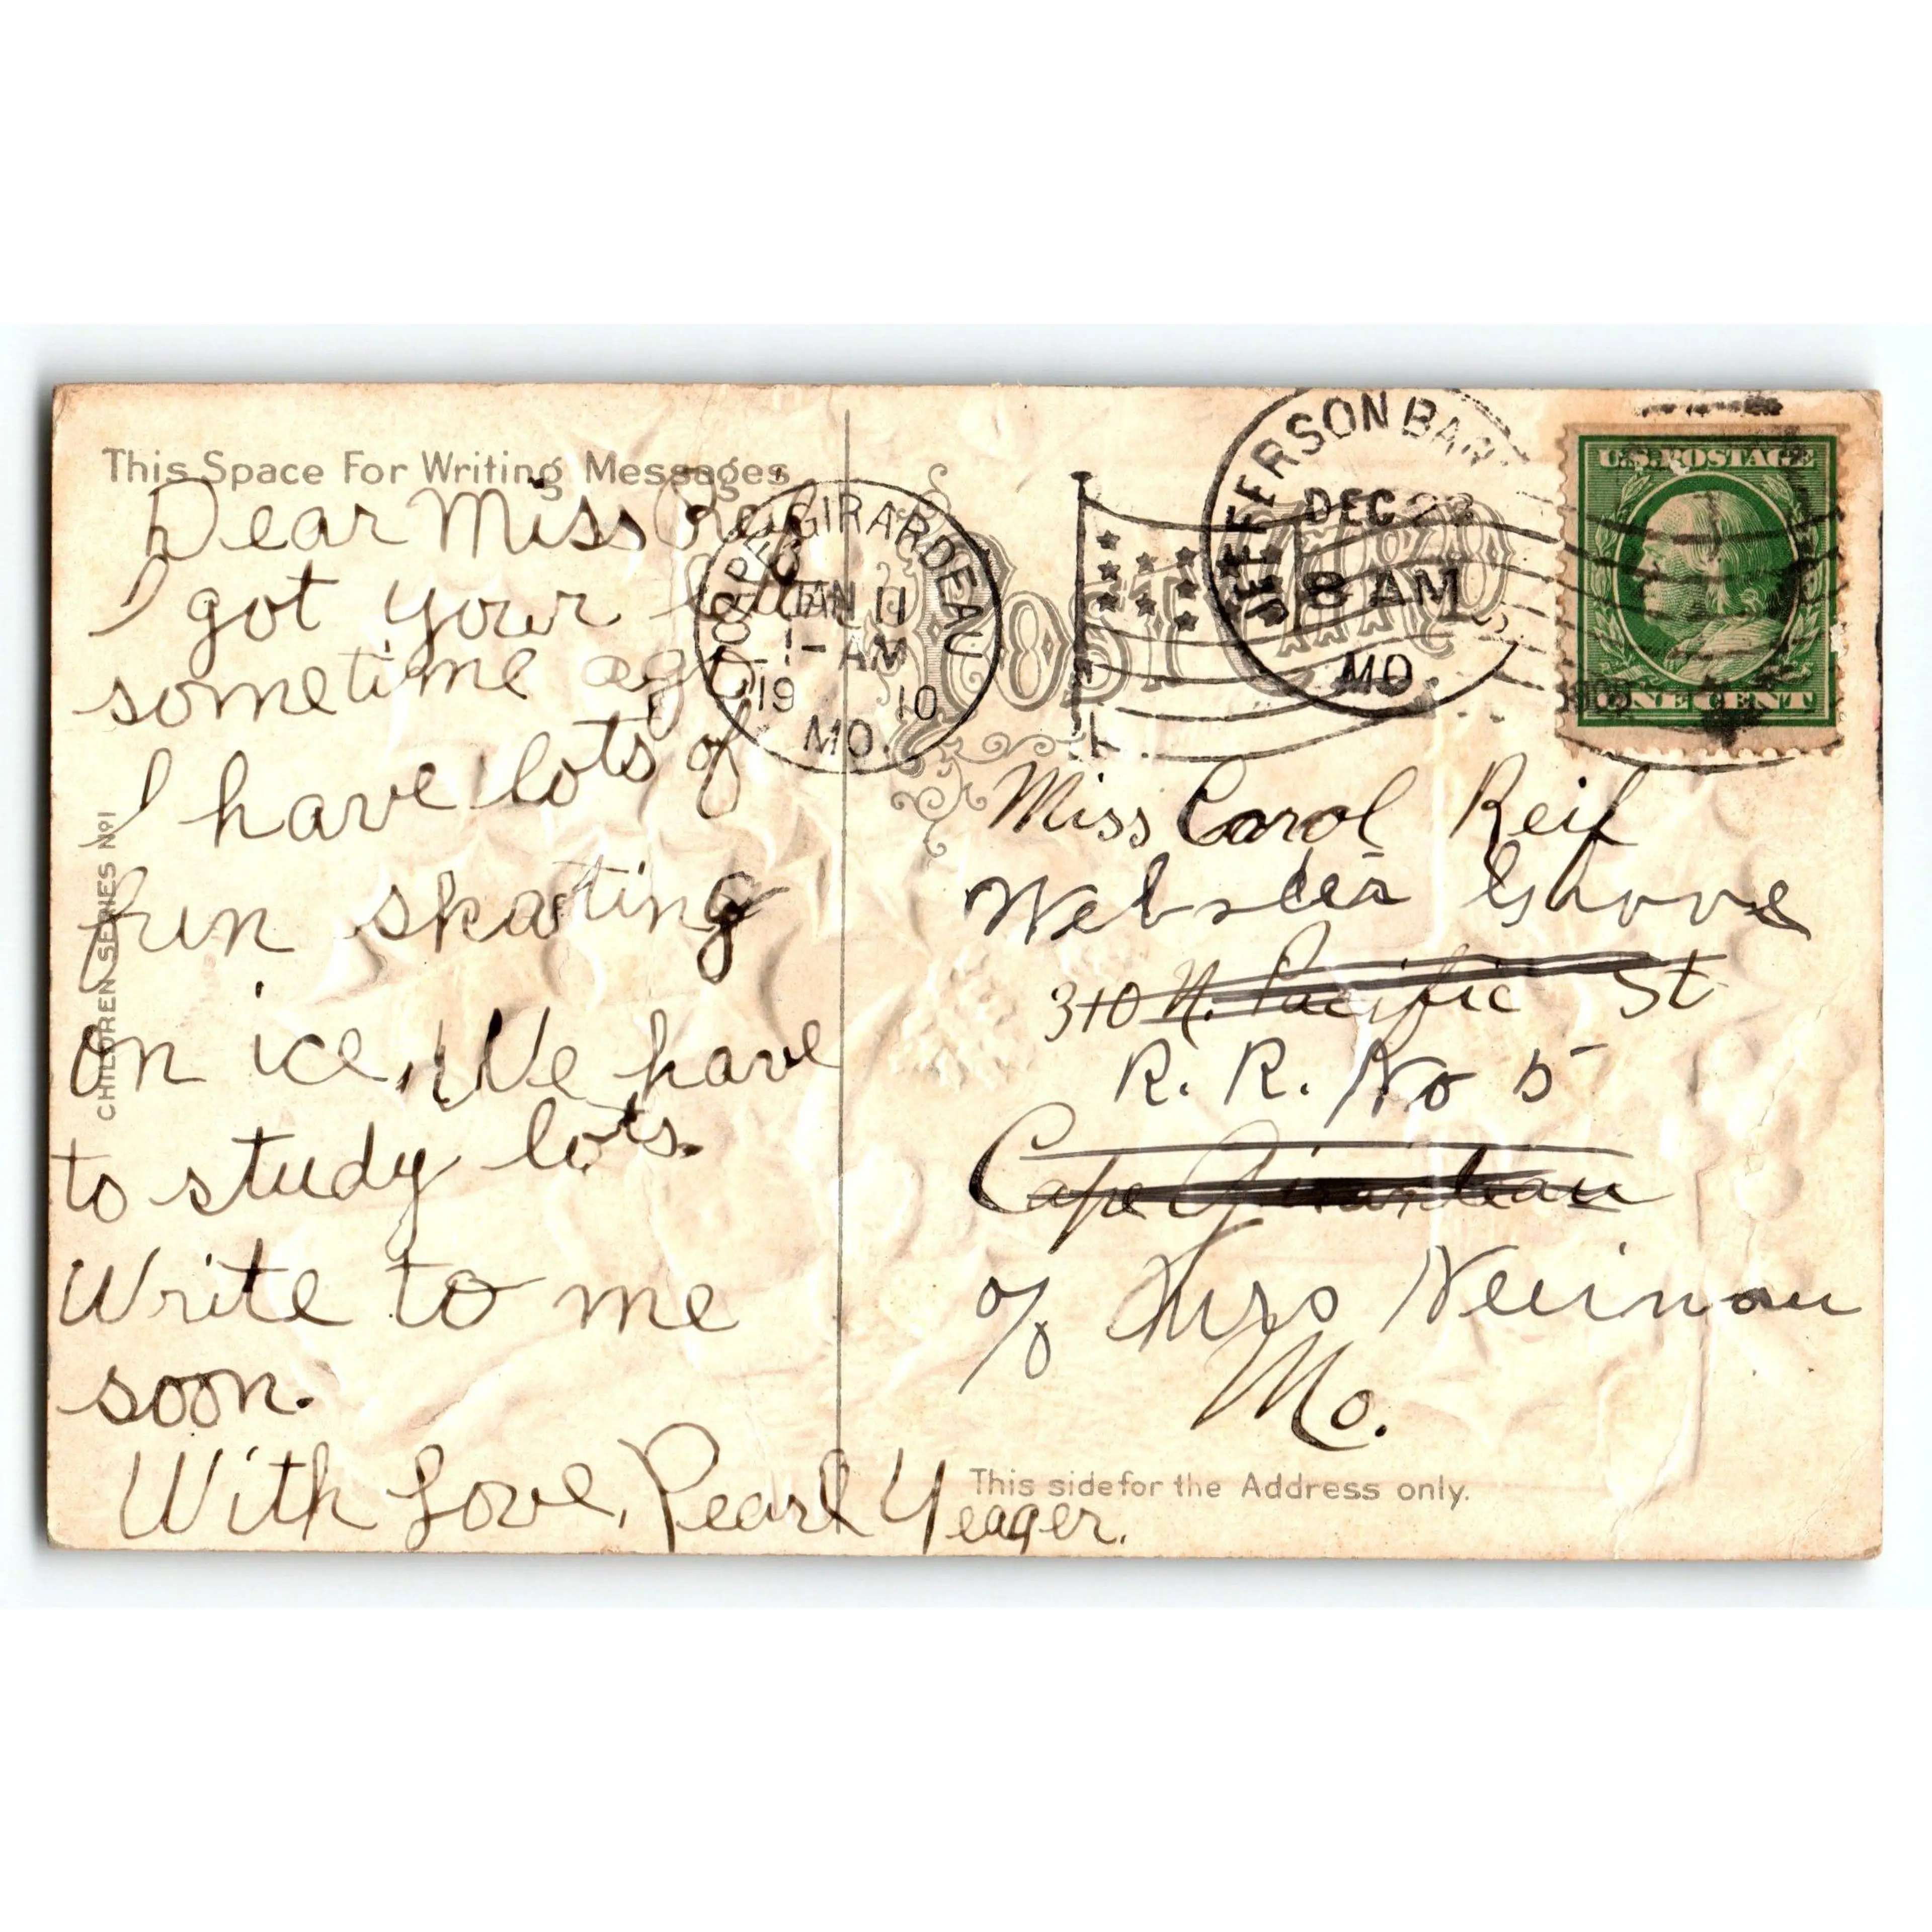 This Space For Writing Messages
Dear Miss Reif
I got your
sometime ago
I have lots of
fun skating
on ice, We have
to study lots.
Write to me
soon.
With Love, Pearl Yeager.
CHILDREN SERIES Nº1
CAPE GIRARDEAU
JAN 11
1-AM
19 10
MO.
POST CARD
JEFFERSON BAR
DEC 23
8 AM
MO
U.S. POSTAGE
ONE CENT
Miss Carol Reif
Webster Grove
310 N. Pacific St
R. R. No 5
Cape Girardeau
Mo.
This side for the Address only.